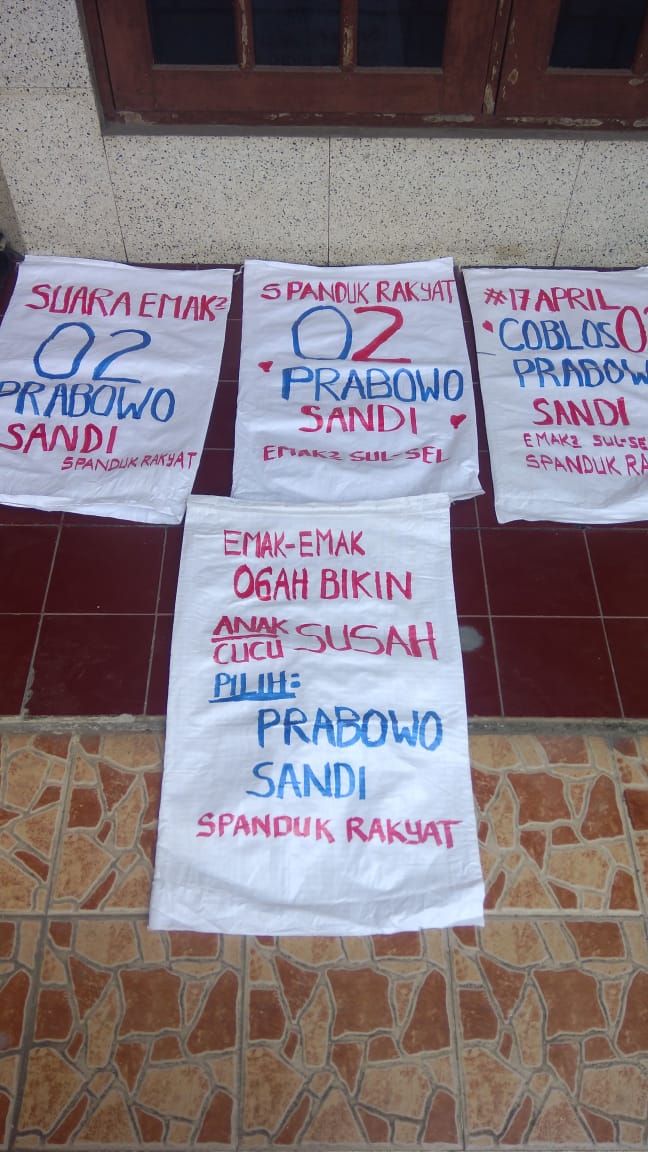 SUARA EMAK2
02
PRABOWO
SANDI
SPANDUK RAKYAT
SPANDUK RAKYAT
02
PRABOWO
SANDI
EMAK2 SUL-SEL
#17 APRIL
COBLOS 02
PRABOW
SANDI
EMAK2 SUL-SE
SPANDUK RA
EMAK-EMAK
OGAH BIKIN
ANAK CUCU SUSAH
PILIH:
PRABOWO
SANDI
SPANDUK RAKYAT